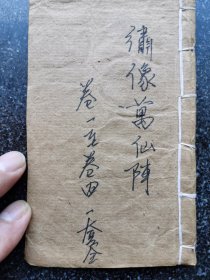 繡像萬仙陣
卷一至卷四 一套全